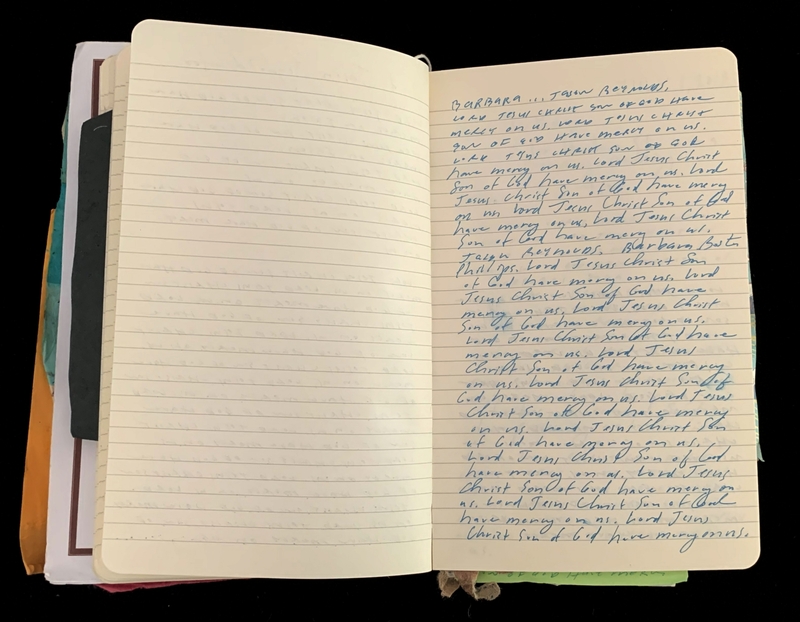 BARBARA ... JASON REYNOLDS.
LORD JESUS CHRIST SON OF GOD HAVE
MERCY ON US. LORD JESUS CHRIST
SON OF GOD HAVE MERCY ON US.
LORD JESUS CHRIST SON OF GOD
have mercy on us. Lord Jesus Christ
Son of God have mercy on us. Lord
Jesus Christ Son of God have mercy
on us Lord Jesus Christ Son of God
have mercy on us. Lord Jesus Christ
Son of God have mercy on us.
JASON REYNOLDS. Barbara
Phillips. Lord Jesus Christ Son
of God have mercy on us. Lord
Jesus Christ Son of God have
mercy on us. Lord Jesus Christ
Son of God have mercy on us.
Lord Jesus Christ Son of God have
mercy on us. Lord Jesus
Christ Son of God have mercy
on us. Lord Jesus Christ Son of
God have mercy on us. Lord Jesus
Christ Son of God have mercy
on us. Lord Jesus Christ Son
of God have mercy on us.
Lord Jesus Christ Son of God
have mercy on us. Lord Jesus
Christ Son of God have mercy on
us. Lord Jesus Christ Son of God
have mercy on us. Lord Jesus
Christ Son of God have mercy on us.